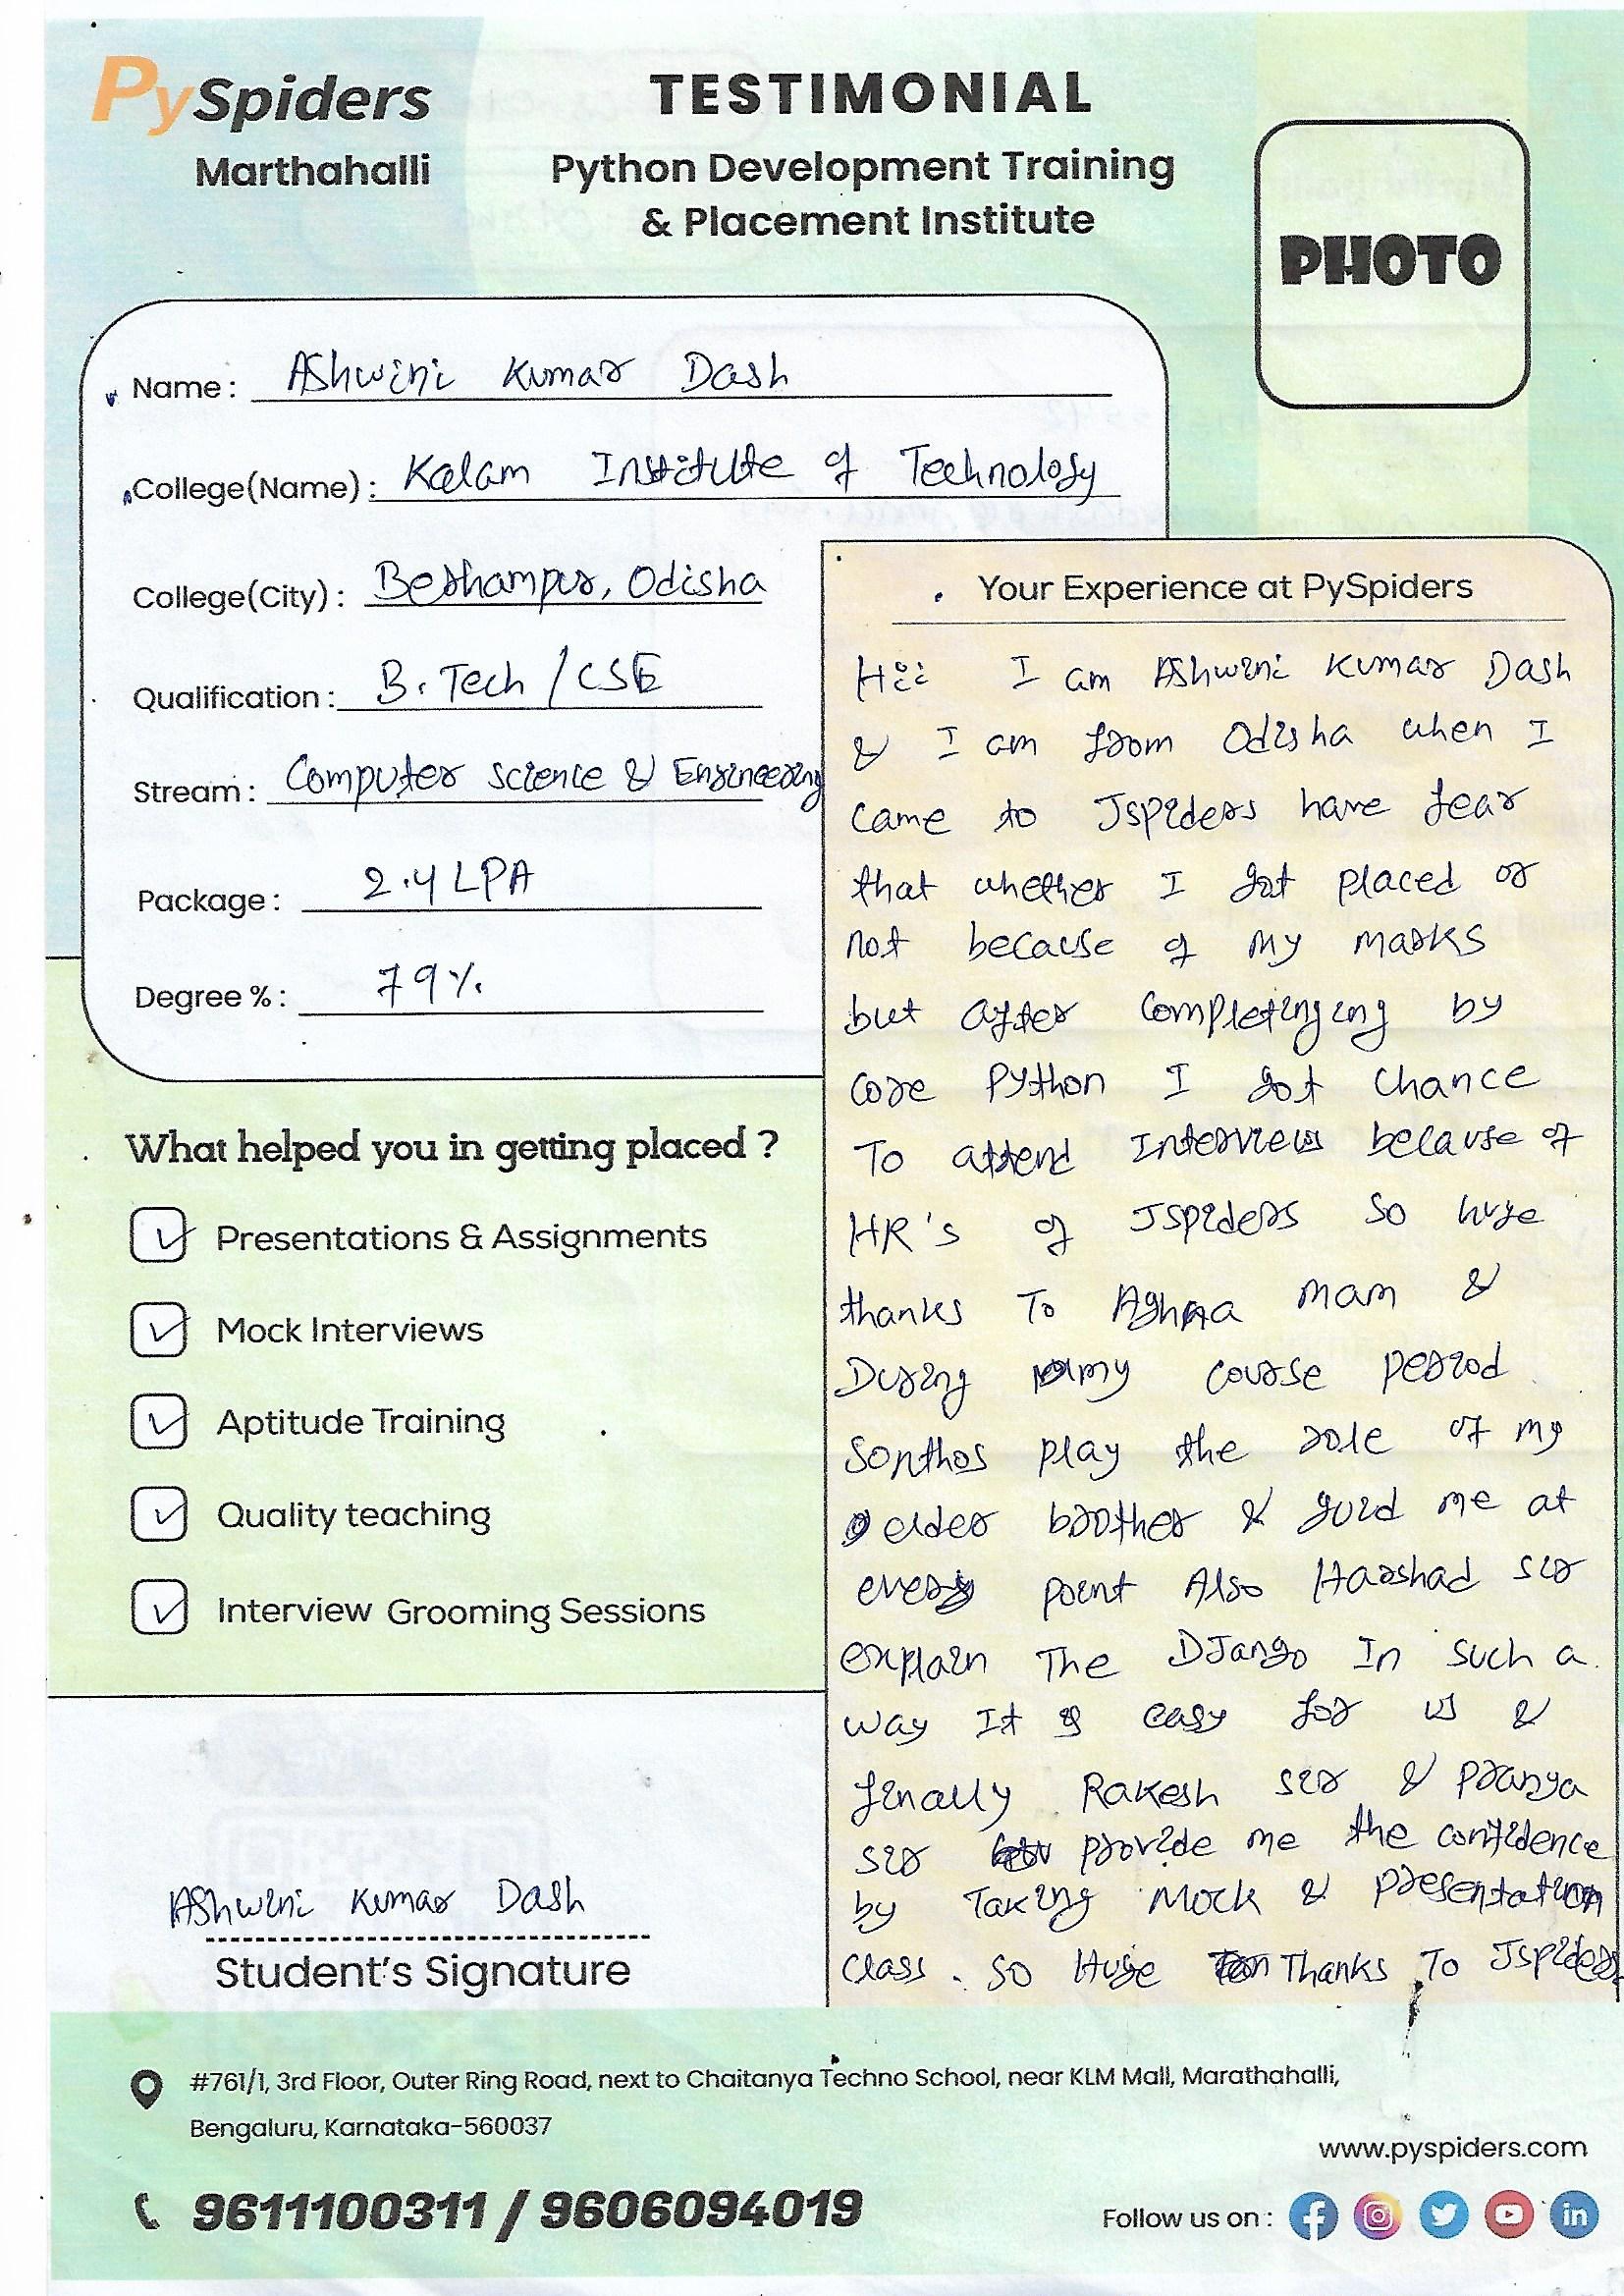 PySpiders
Marthahalli
TESTIMONIAL
Python Development Training
& Placement Institute
PHOTO
Name : Ashwini Kumar Dash
College(Name) : Kalam Institute of Technology
College(City) : Berhampur, Odisha
Qualification : B. Tech / CSE
Stream : Computer Science & Engineering
Package : 2.4 LPA
Degree % : 79%
What helped you in getting placed ?
Presentations & Assignments
Mock Interviews
Aptitude Training
Quality teaching
Interview Grooming Sessions
Ashwini Kumar Dash
Student's Signature
Your Experience at PySpiders
Hii I am Ashwini Kumar Dash
& I am from Odisha when I
came to Jspiders have fear
that whether I got placed or
not because of my marks
but after completinging by
core Python I got chance
To attend Interview because of
HR's of Jspiders so huge
thanks To mam &
During my course period
Sonthos play the role of my
elder brother & guid me at
every point Also Harshad sir
explain The DJango In such a
way It is easy for us &
finally Rakesh sir & Pranya
sir provide me the confidence
by Taking Mock & presentation
class. So Huge Thanks To Jspiders
#761/1, 3rd Floor, Outer Ring Road, next to Chaitanya Techno School, near KLM Mall, Marathahalli,
Bengaluru, Karnataka-560037
www.pyspiders.com
9611100311 / 9606094019
Follow us on :